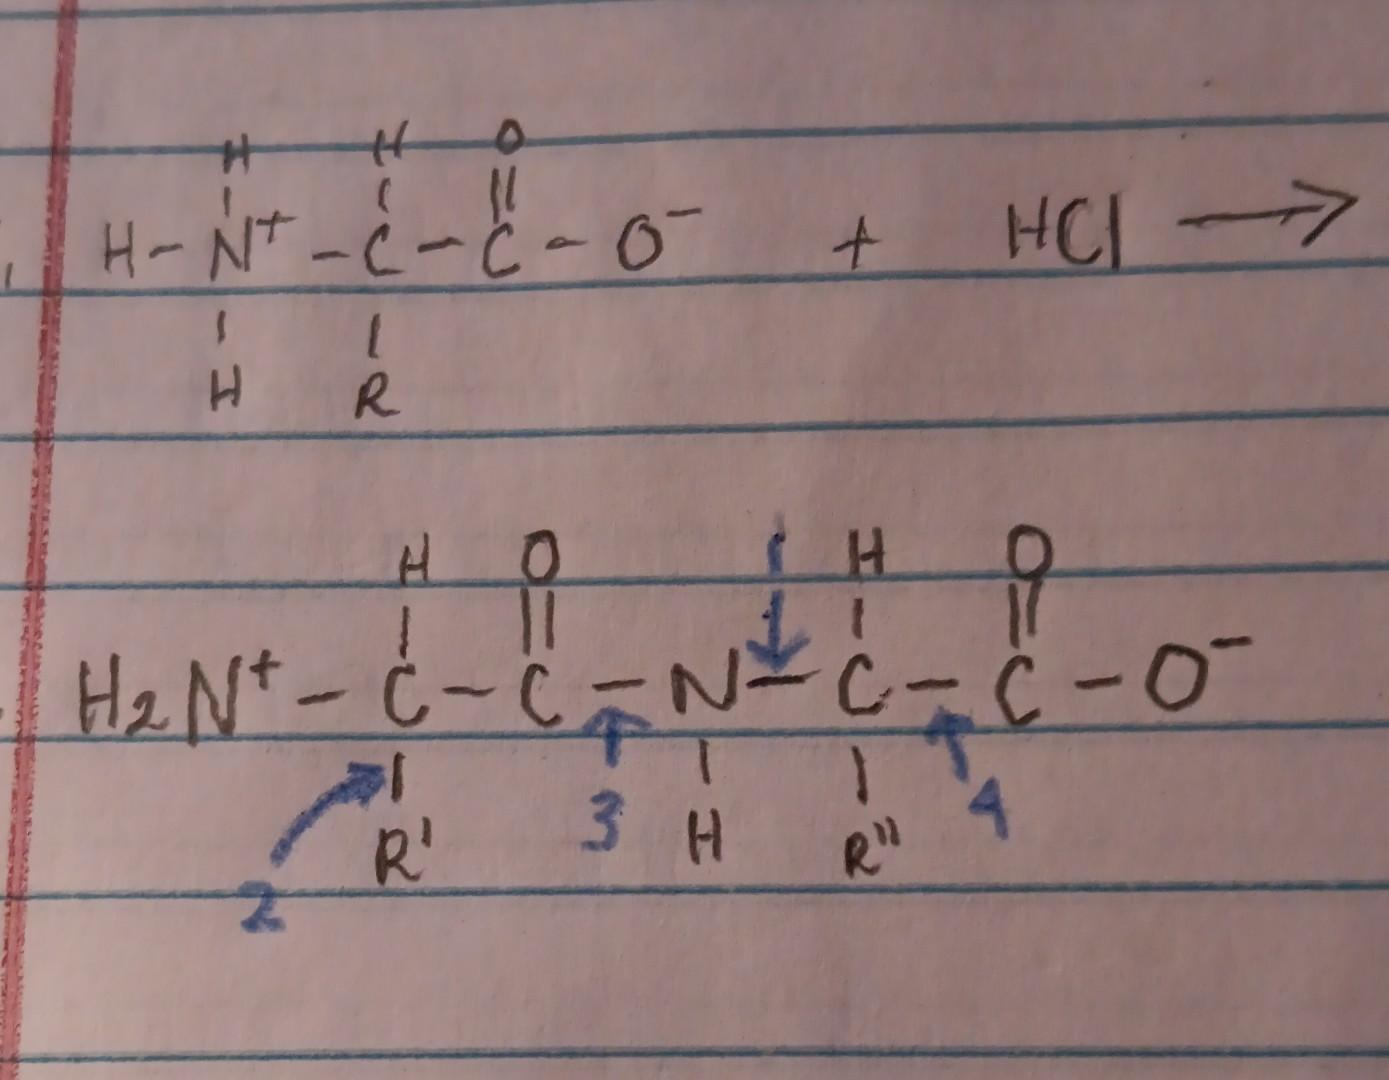 H H O
H-N⁺-C-C-O⁻ + HCl →
H R
1 H O H O
H₂N⁺-C-C-N-C-C-O⁻
2 R' 3 H R" 4